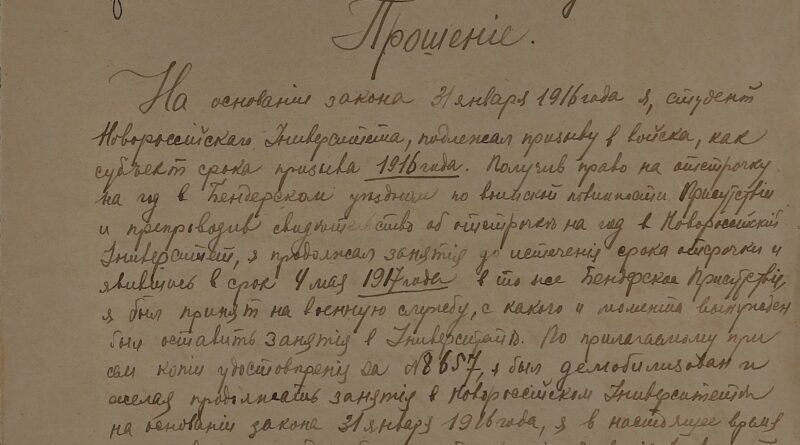 Прошеніе.
На основаніи закона 31 января 1916 года я, студент
Новороссійскаго Университета, подлежал призыву в войска, как
субъект срока призыва 1916 года. Получив право на отсрочку
на год в Бендерском уѣздном по воинской повинности Присутствіи
и препроводив свидѣтельство об отсрочкѣ на год в Новороссійскій
Университет, я продолжал занятія до истеченія срока отсрочки и
явившись в срок 4 мая 1917 года в то же Бендерское Присутствіе,
я был принят на военную службу, с какого и момента вынужден
был оставить занятія в Университетѣ. По прилагаемому при
сем копіи удостовѣренія за №8657, я был демобилизован и
желая продолжать занятія в Новороссійском Университетѣ
на основаніи закона 31 января 1916 года, я в настоящее время